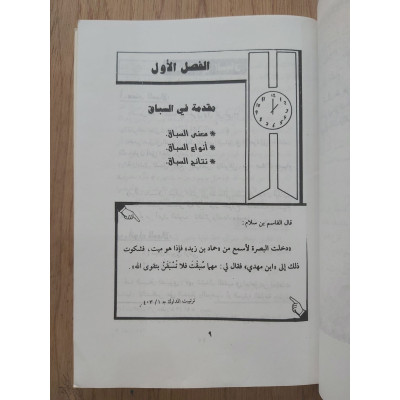 الفصل الأول
مقدمة في السباق
* معنى السباق.
* أنواع السباق.
* نتائج السباق.
قال القاسم بن سلام:
«دخلت البصرة لأسمع من «حماد بن زيد» فإذا هو ميت، فشكوت
ذلك إلى «ابن مهدي» فقال لي: مهما سُبقتَ فلا تُسْبَقَنَّ بتقوى الله».
٩